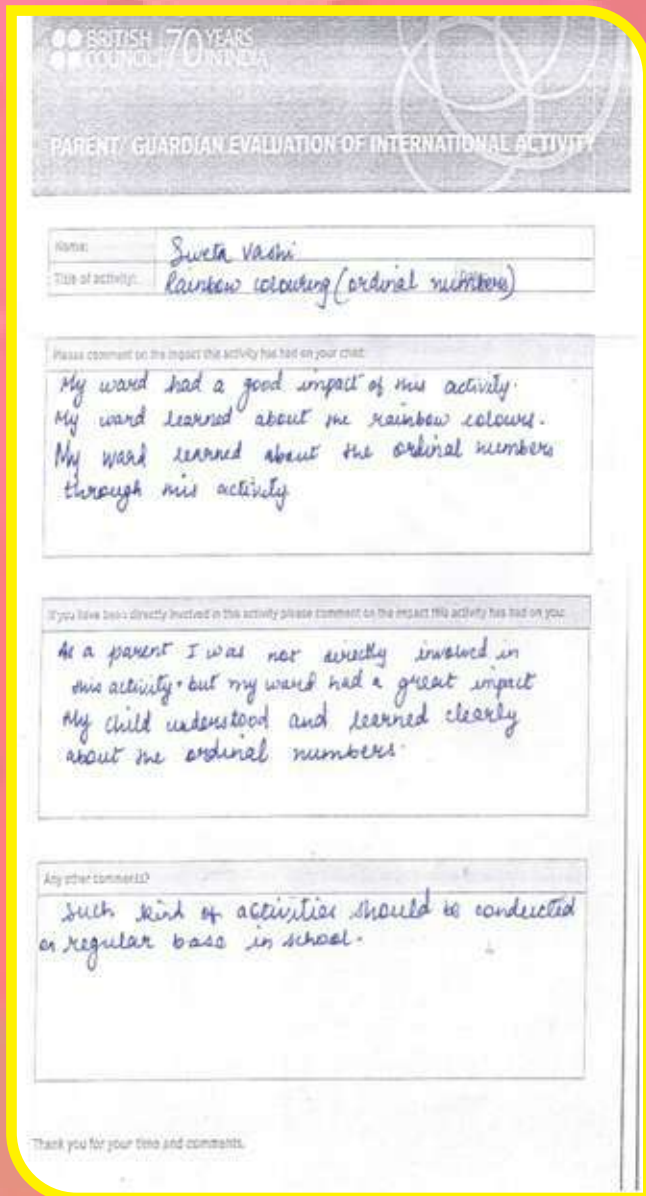 BRITISH 70 YEARS
COUNCIL IN INDIA
PARENT/ GUARDIAN EVALUATION OF INTERNATIONAL ACTIVITY
Name: Sweta Vashi
Title of activity: Rainbow colouring (ordinal numbers)
Please comment on the impact this activity has had on your child:
My ward had a good impact of this activity.
My ward learned about the rainbow colours.
My ward learned about the ordinal numbers
through this activity
If you have been directly involved in this activity please comment on the impact this activity has had on you:
As a parent I was not directly involved in
this activity. but my ward had a great impact
My child understood and learned clearly
about the ordinal numbers.
Any other comments?
Such kind of activities should be conducted
on regular base in school.
Thank you for your time and comments.